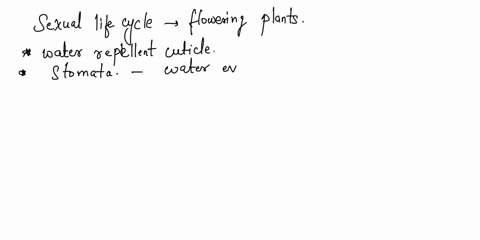 Sexual life cycle → flowering plants.
* water repellent cuticle.
* Stomata. — water ev